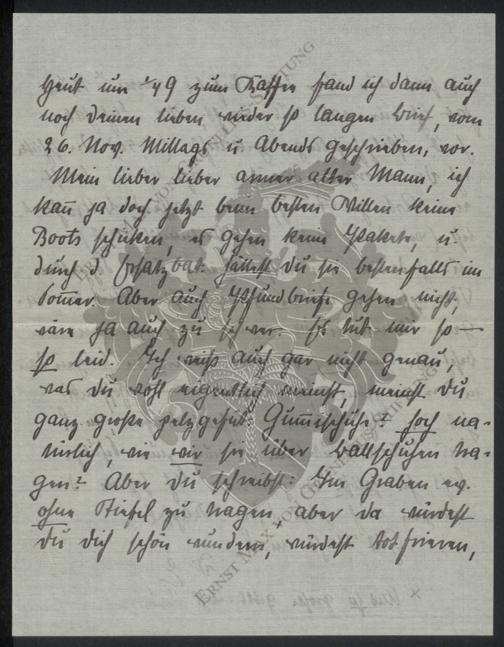 Heut um ¼9 zum Kaffee fand ich dann auch
noch Deinen lieben, wieder so langen Brief, vom
26. Nov. Mittags u. Abends geschrieben, vor.
Mein lieber lieber armer alter Mann, ich
kann ja doch jetzt beim besten Willen keine
Boots schicken, es gehen keine Pakete, u.
durch d. Ersatzbat. hättest Du sie bestenfalls im
Sommer. Aber auch Pfundbriefe gehen nicht,
wäre ja auch zu schwer. Es tut mir so —
so leid. Ich weiss auch gar nicht genau,
was Du wohl eigentlich meinst, meinst Du
ganz große pelzgefütt. Gummischuhe? Hoch na-
türlich, wie wir sie über Ballschuhen tra-
gen? Aber Du schreibst: Im Graben ev.
ohne Stiefel zu tragen, aber da würdest
Du Dich schön wundern, würdest totfrieren,
ERNST MAX VON GRUNELIUS-STIFTUNG